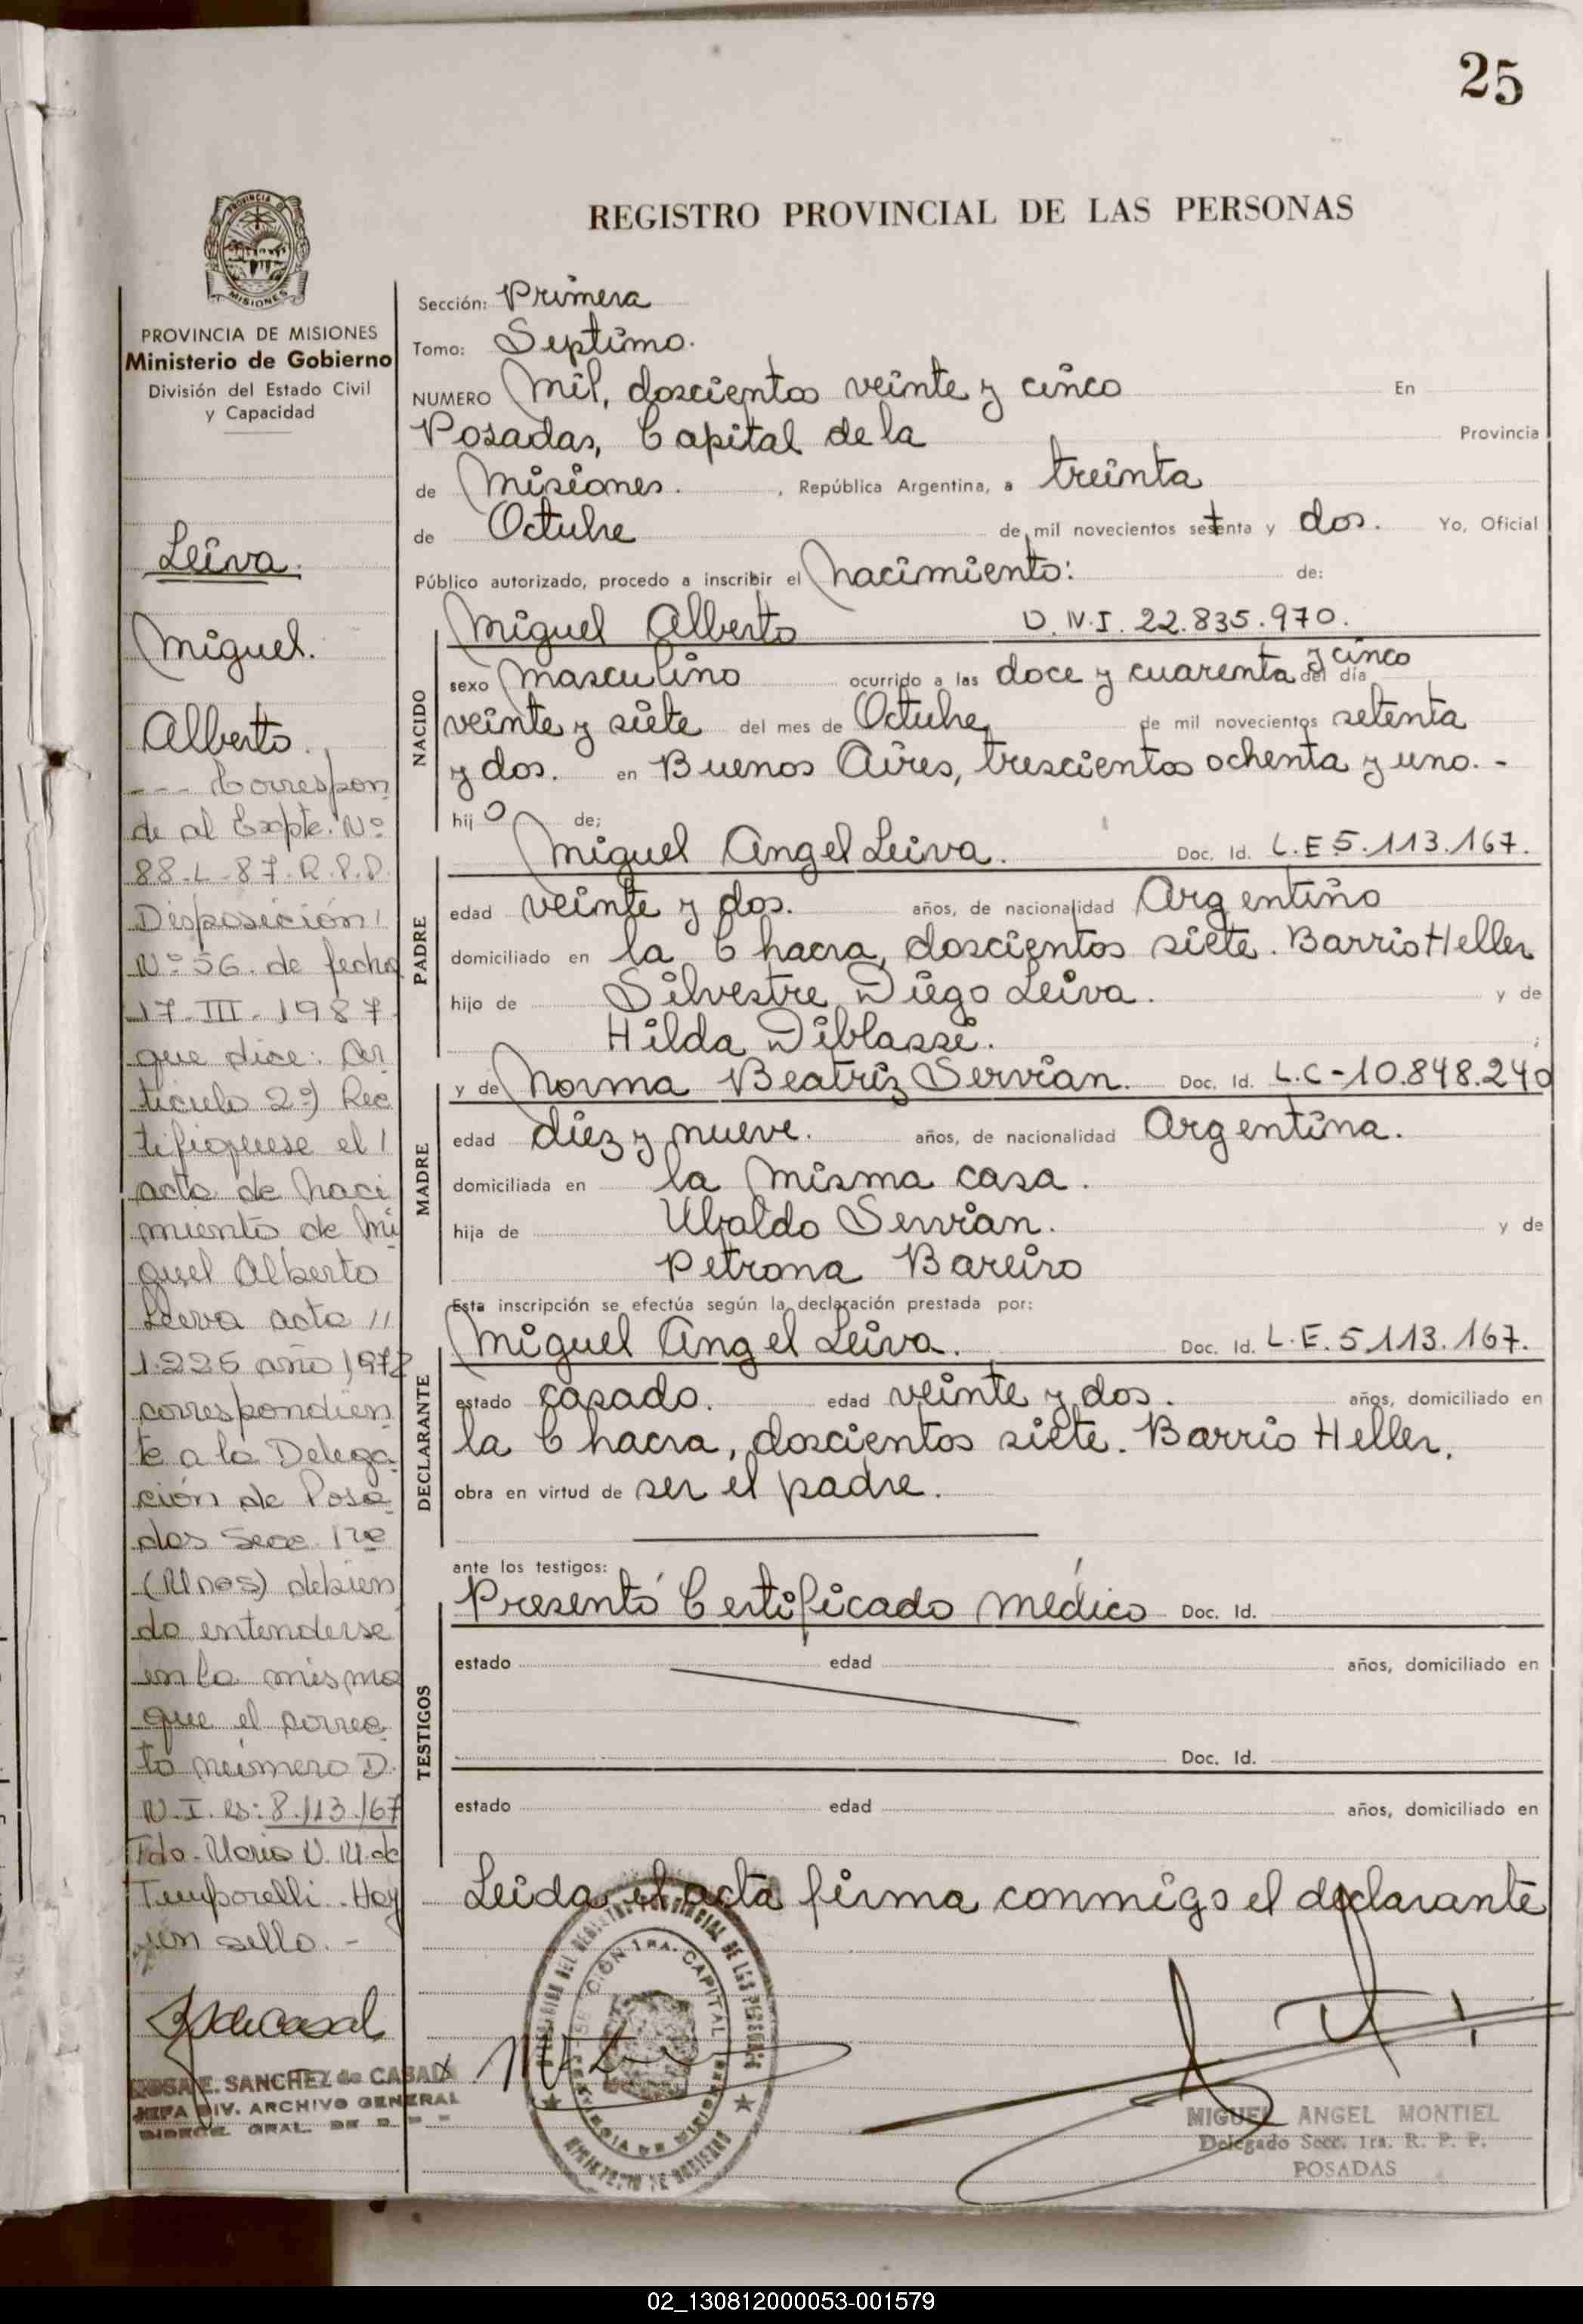 25
REGISTRO PROVINCIAL DE LAS PERSONAS
PROVINCIA DE MISIONES
Ministerio de Gobierno
División del Estado Civil
y Capacidad
Leiva.
Miguel.
Alberto.
--- Correspon
de al Expte. Nº
88-L-87-R.P.P.
Disposición
Nº 56. de fecha
17-III-1987
que dice: Ar
tículo 2º) Rec
tifíquese el
acta de naci
miento de Mi
guel Alberto
Leiva acta //
1.225 año 1972
correspondien
te a la Delega
ción de Posa
das Secc. 1ra
debien
do entenderse
en la misma
que el correc
to número D.
N.I. es: 8.113.167
Fdo. María
Temporelli. Hay
un sello.-
ROSA E. SANCHEZ de CASAL
JEFA DIV. ARCHIVO GENERAL
GRAL. DE
Sección: Primera
Tomo: Septimo.
NUMERO Mil, doscientos veinte y cinco En
Posadas, Capital de la Provincia
de Misiones. , República Argentina, a treinta
de Octubre de mil novecientos setenta y dos. Yo, Oficial
Público autorizado, procedo a inscribir el nacimiento: de:
Miguel Alberto D.N.I. 22.835.970.
NACIDO
sexo masculino ocurrido a las doce y cuarenta y cinco del día
veinte y siete del mes de Octubre de mil novecientos setenta
y dos. en Buenos Aires, trescientos ochenta y uno.-
hijo de;
PADRE
Miguel Angel Leiva. Doc. Id. L.E 5.113.167.
edad veinte y dos. años, de nacionalidad Argentino
domiciliado en la Chacra, doscientos siete. Barrio Heller
hijo de Silvestre Diego Leiva. y de
Hilda Diblassi. ;
MADRE
y de Norma Beatriz Servian. Doc. Id. L.C-10.848.240
edad diez y nueve. años, de nacionalidad Argentina.
domiciliada en la misma casa.
hija de Ubaldo Servian. y de
Petrona Bareiro
Esta inscripción se efectúa según la declaración prestada por:
DECLARANTE
Miguel Angel Leiva. Doc. Id. L.E. 5.113.167.
estado casado. edad veinte y dos. años, domiciliado en
la Chacra, doscientos siete. Barrio Heller.
obra en virtud de ser el padre.
ante los testigos:
TESTIGOS
Presentó Certificado médico Doc. Id.
estado edad años, domiciliado en
Doc. Id.
estado edad años, domiciliado en
Leida el acta firma conmigo el declarante
SECCIÓN 1RA. CAPITAL
MINISTERIO DE GOBIERNO
MIGUEL ANGEL MONTIEL
Delegado Secc. 1ra. R. P. P.
POSADAS
02_130812000053-001579